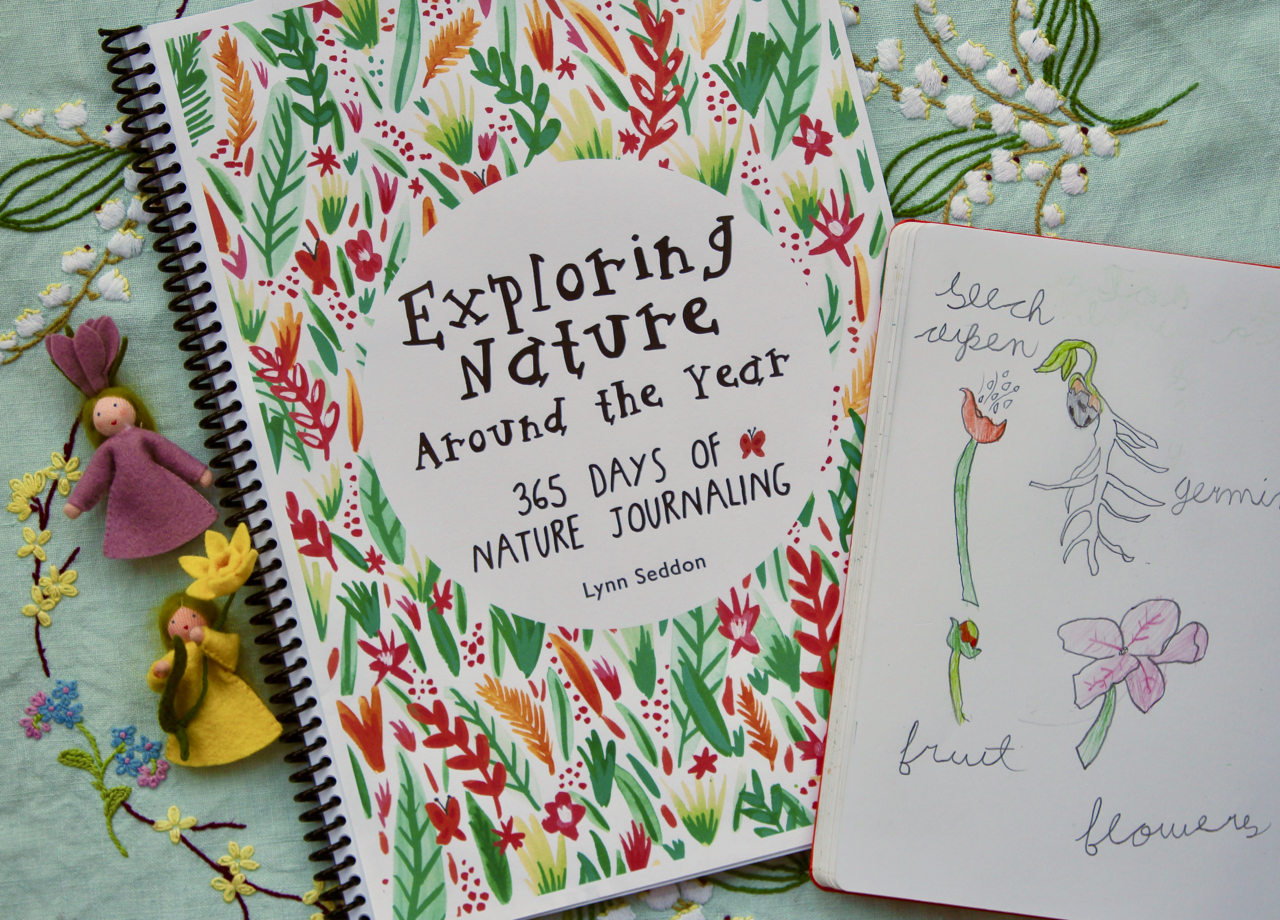 Exploring
Nature
Around the Year
365 DAYS OF
NATURE JOURNALING
Lynn Seddon
seech
ripen
germin
fruit
flowers